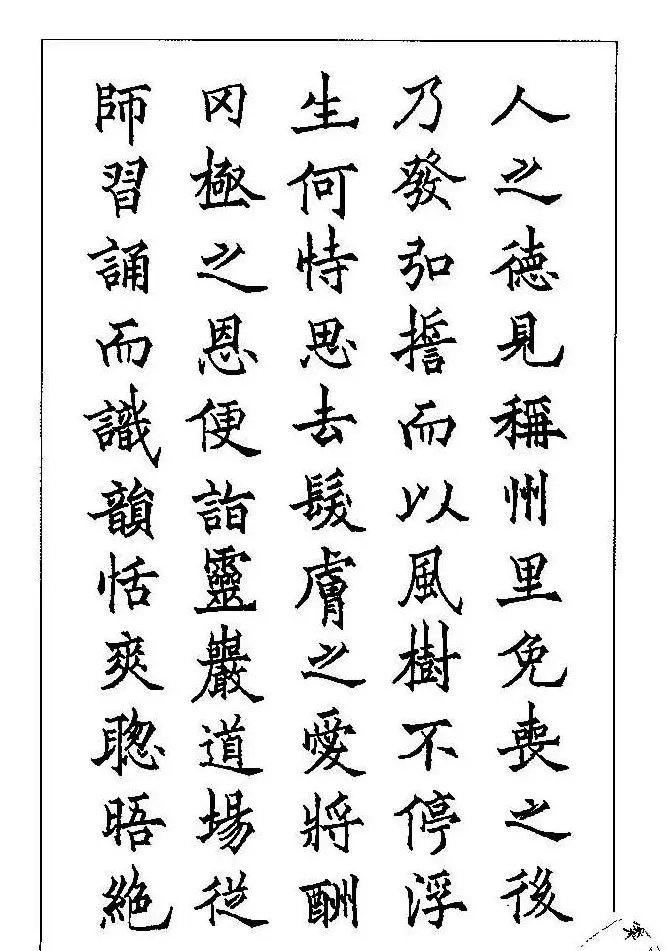 人之德見稱州里免喪之後
乃發弘誓而以風樹不停浮
生何恃思去髮膚之愛將酬
罔極之恩便詣靈巖道場從
師習誦而識韻恬爽聰晤絶